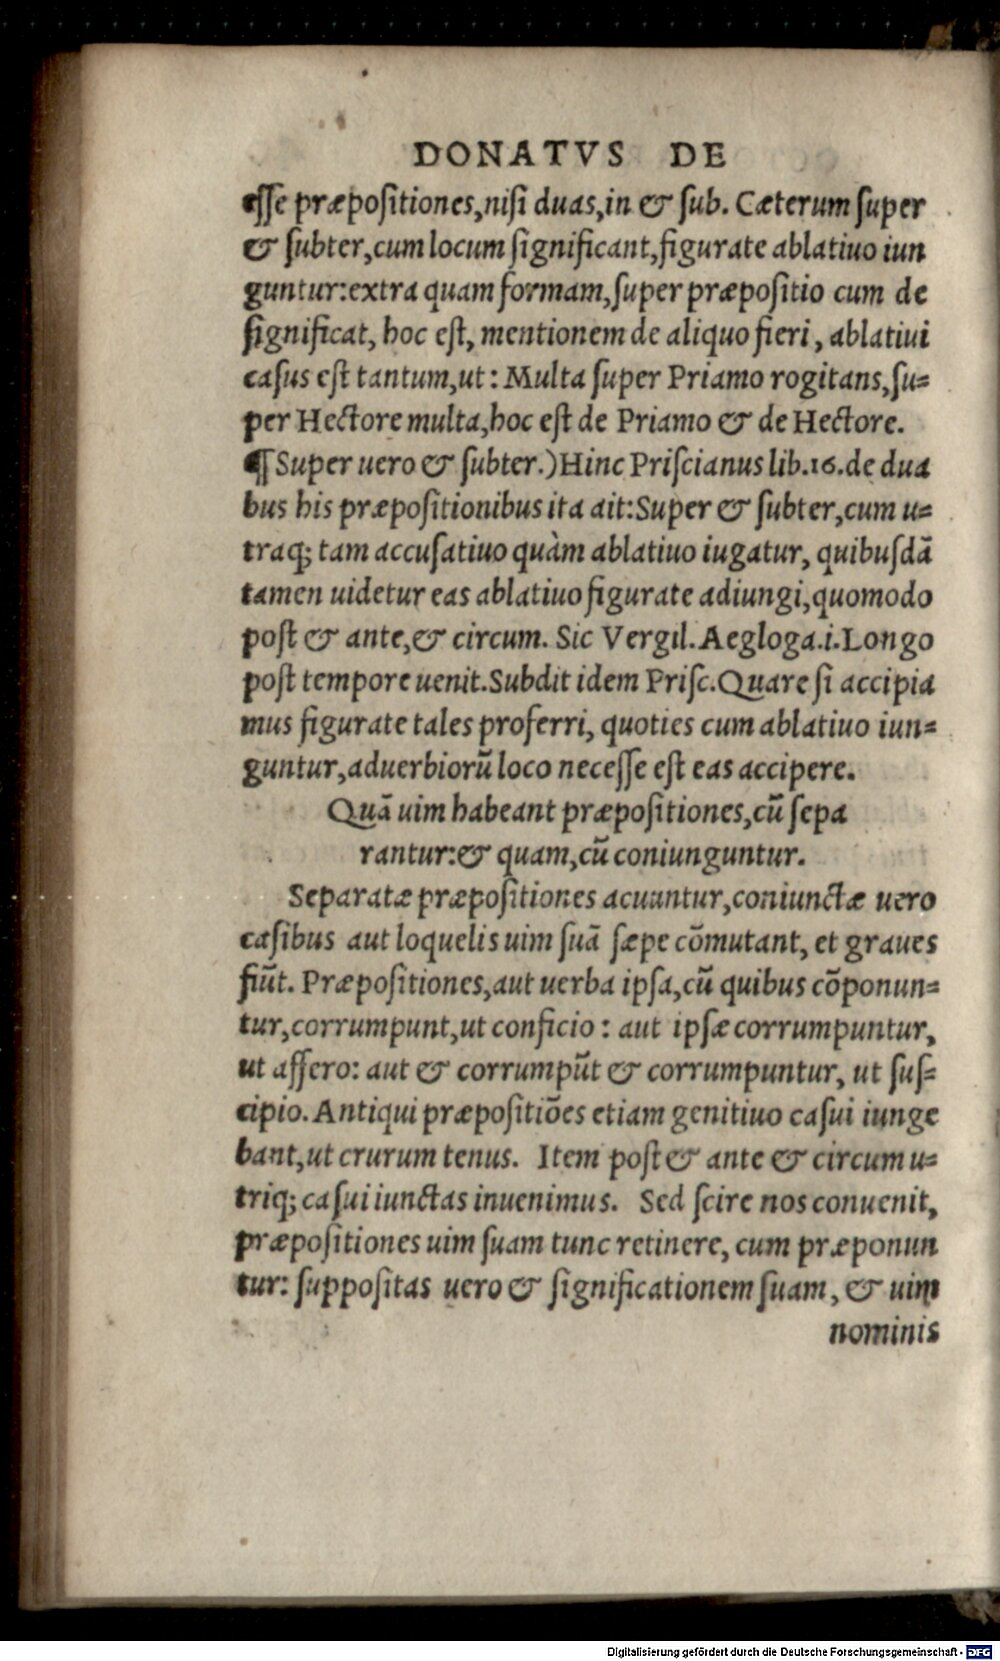 DONATVS DE
esse præpositiones,nisi duas,in & sub. Cæterum super
& subter,cum locum significant,figurate ablatiuo iun
guntur:extra quam formam,super præpositio cum de
significat, hoc est, mentionem de aliquo fieri, ablatiui
casus est tantum,ut: Multa super Priamo rogitans,su⸗
per Hectore multa,hoc est de Priamo & de Hectore.
¶ Super uero & subter.)Hinc Priscianus lib.16.de dua
bus his præpositionibus ita ait:Super & subter,cum u⸗
traq; tam accusatiuo quàm ablatiuo iugatur, quibusdã
tamen uidetur eas ablatiuo figurate adiungi,quomodo
post & ante,& circum. Sic Vergil. Aegloga.i.Longo
post tempore uenit.Subdit idem Prisc.Quare si accipia
mus figurate tales proferri, quoties cum ablatiuo iun⸗
guntur,aduerbiorũ loco necesse est eas accipere.
Quã uim habeant præpositiones,cũ sepa
rantur:& quam,cũ coniunguntur.
Separatæ præpositiones acuuntur,coniunctæ uero
casibus aut loquelis uim suã sæpe cõmutant, et graues
fiũt. Præpositiones,aut uerba ipsa,cũ quibus cõponun⸗
tur,corrumpunt,ut conficio: aut ipsæ corrumpuntur,
ut affero: aut & corrumpũt & corrumpuntur, ut sus⸗
cipio. Antiqui præpositiões etiam genitiuo casui iunge
bant,ut crurum tenus. Item post & ante & circum u⸗
triq; casui iunctas inuenimus. Sed scire nos conuenit,
præpositiones uim suam tunc retinere, cum præponun
tur: suppositas uero & significationem suam, & uim
nominis
Digitalisierung gefördert durch die Deutsche Forschungsgemeinschaft - DFG